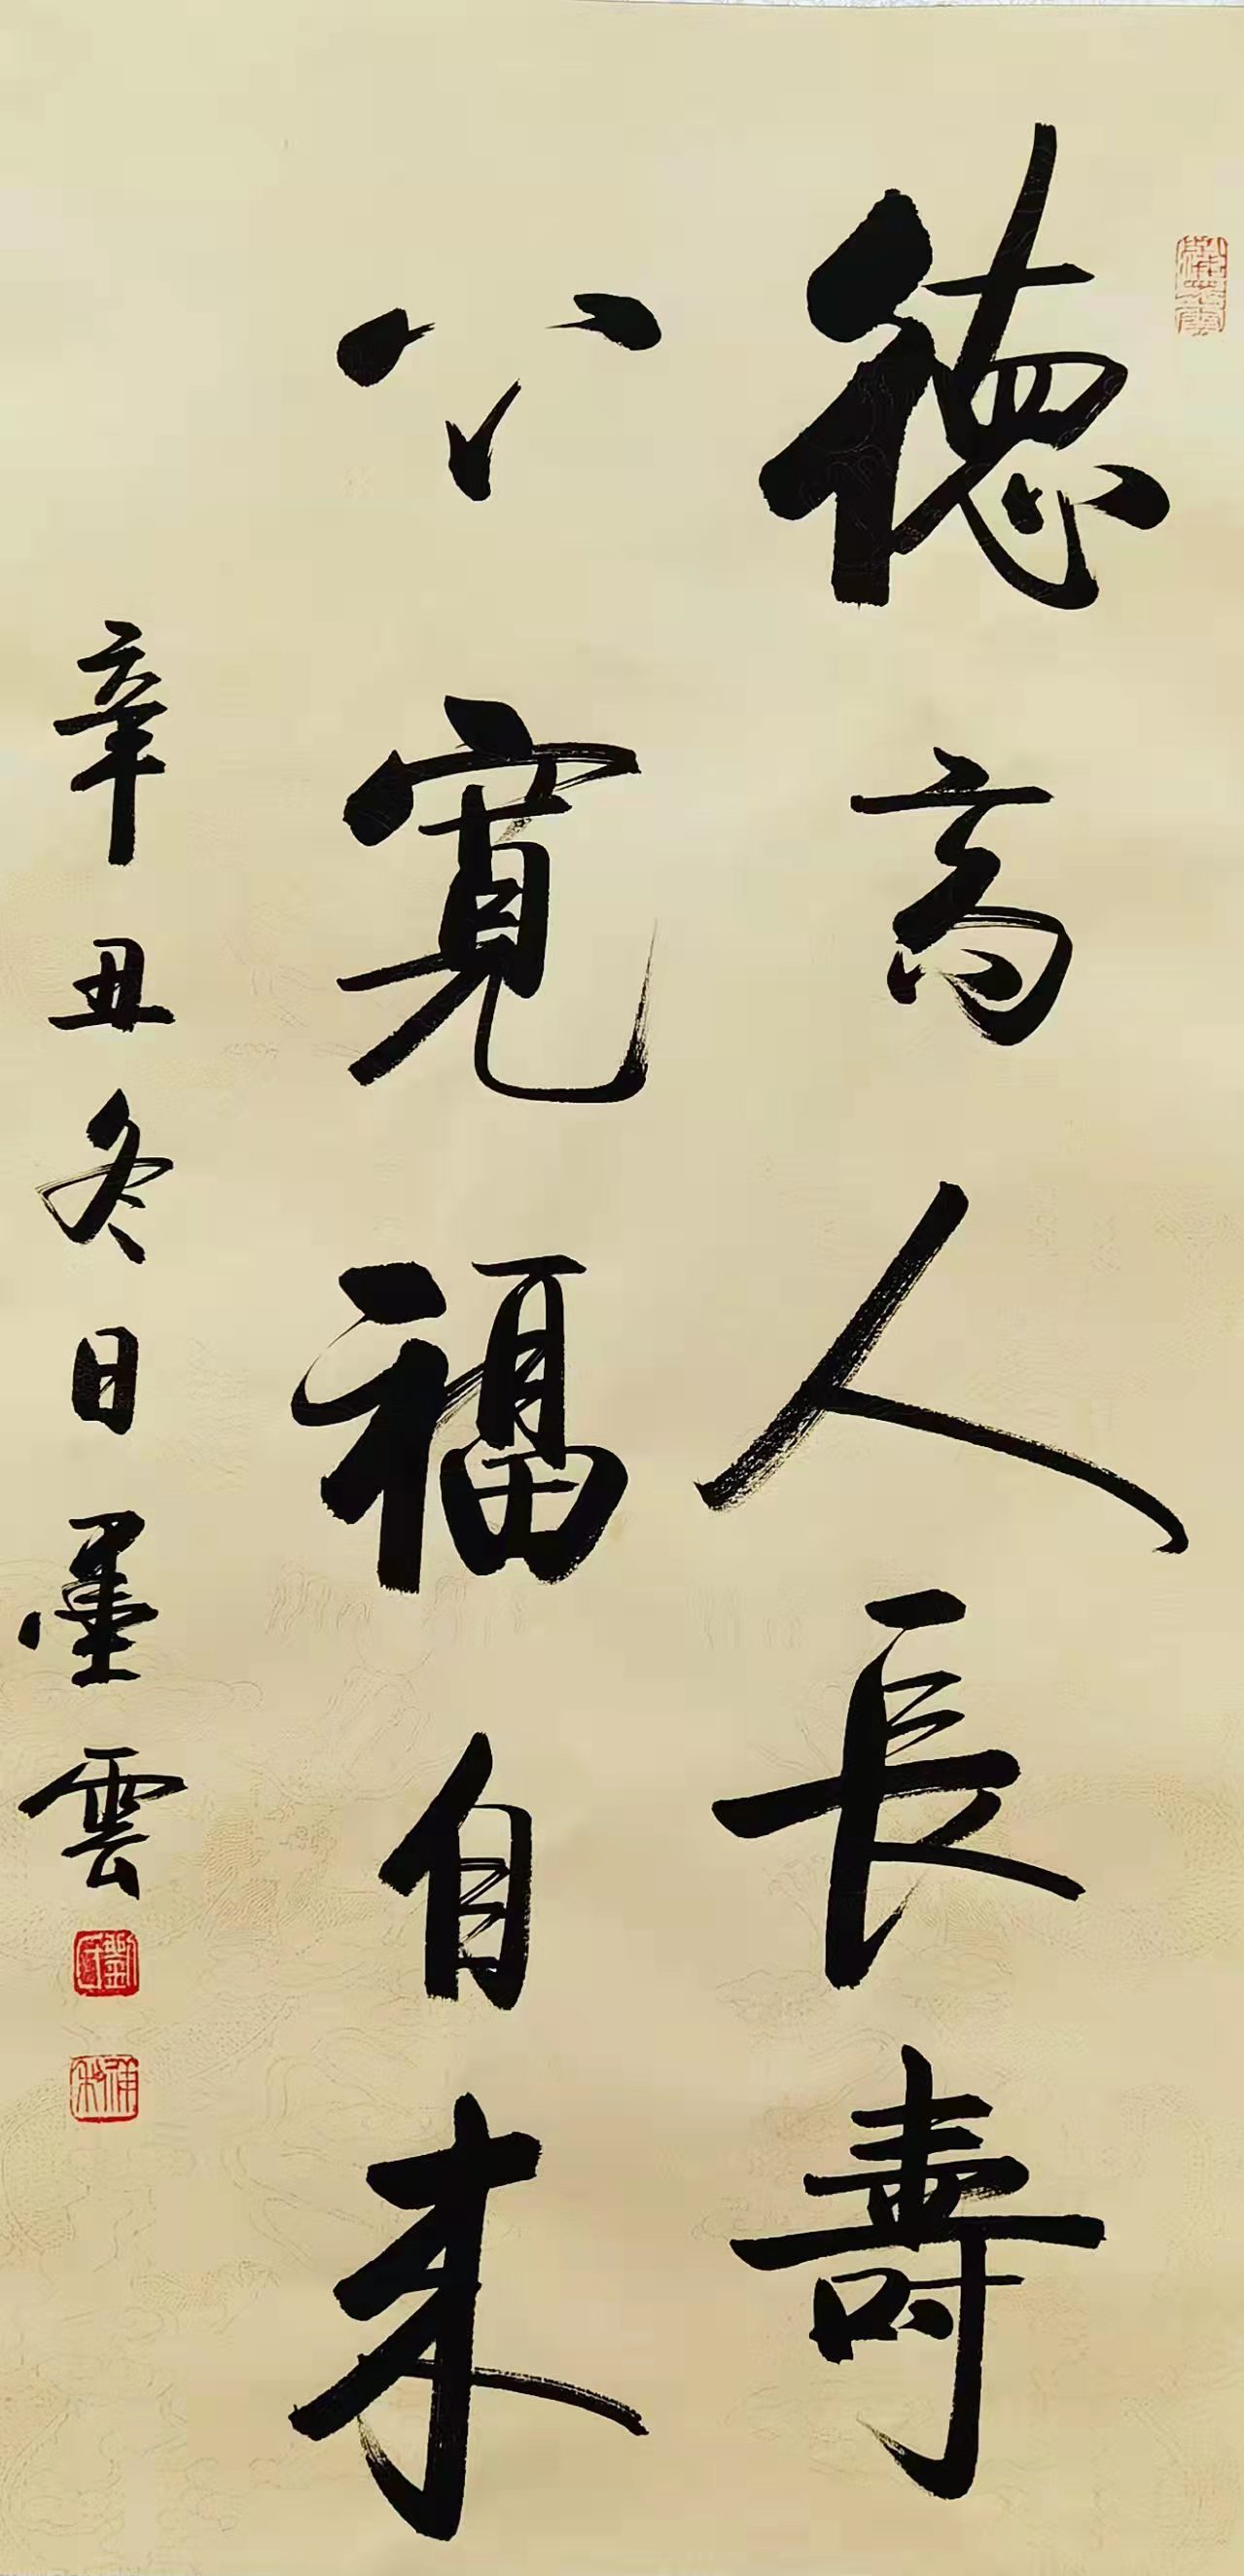 德高人長壽
心寬福自来
辛丑冬日墨雲